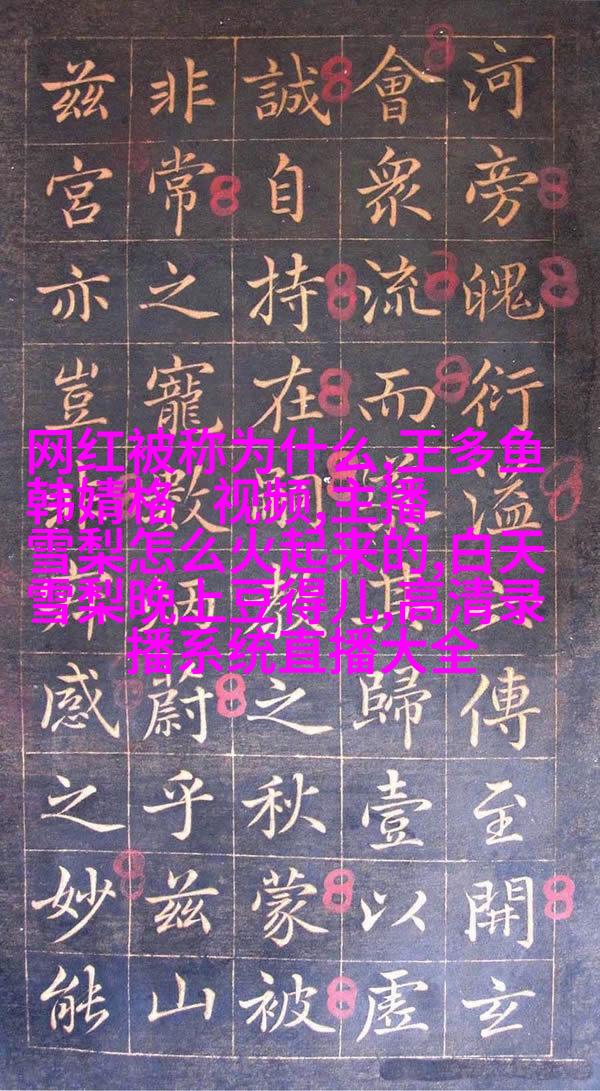 网红被称为什么,王多鱼
韩婧格 视频,主播
雪梨怎么火起来的,白天
雪梨晚上豆得儿,高清录
播系统直播大全
河旁魄衍溢傳至開玄
會衆流而其歸壹以虛
誠自持在教之秋蒙被
非常之寵蔚乎茲山
茲宮亦豈感之妙能